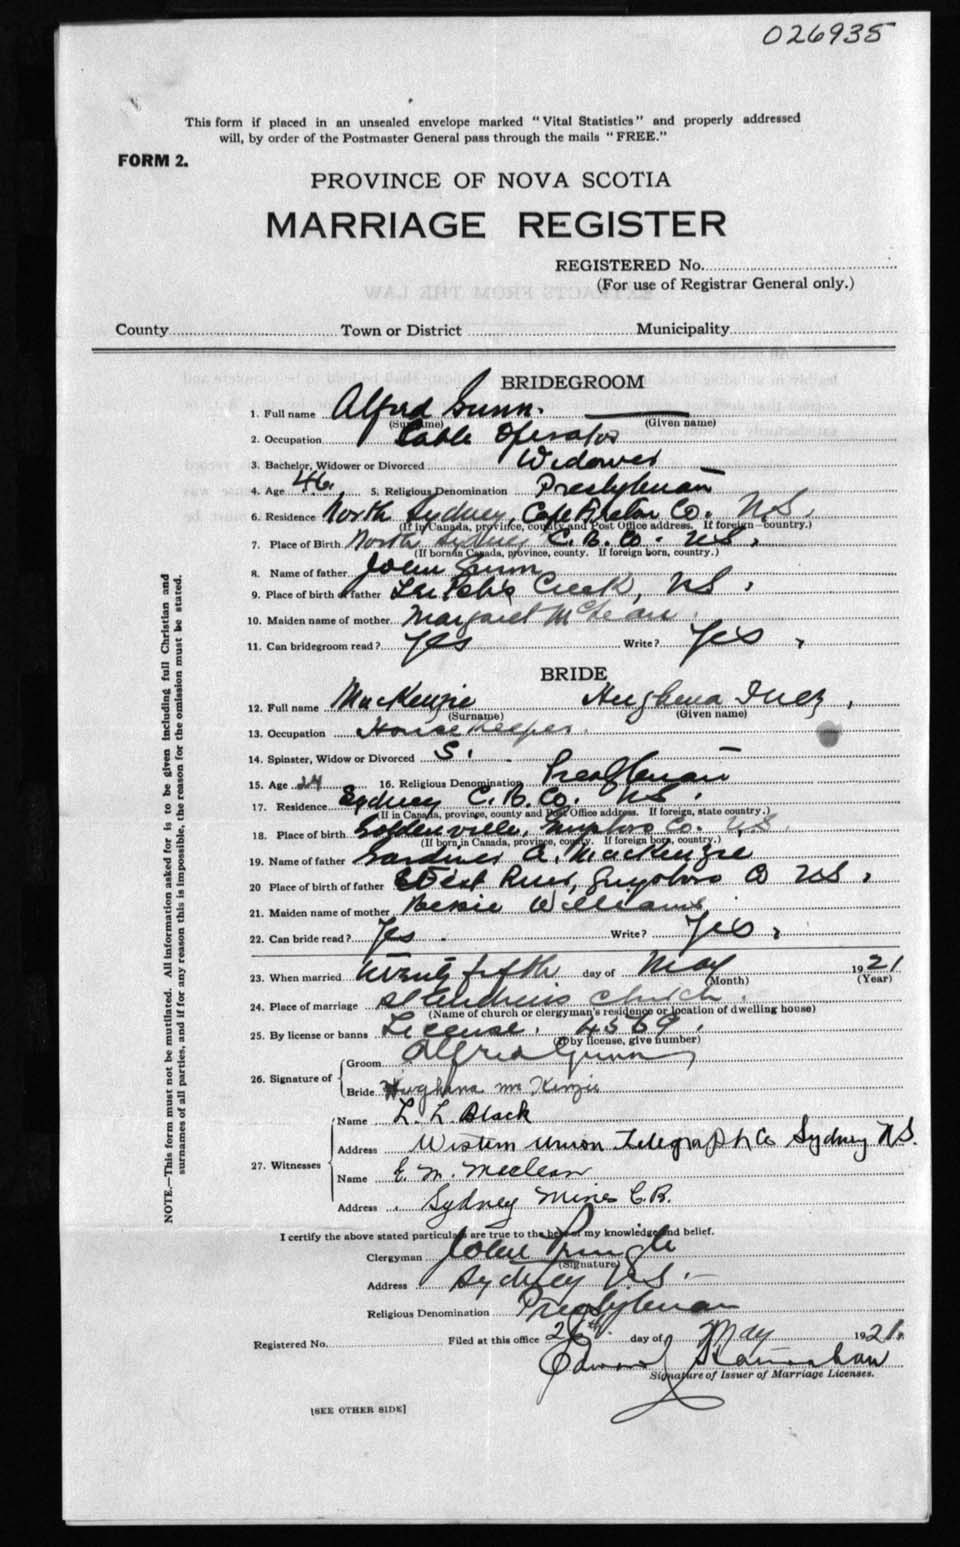 026935
This form if placed in an unsealed envelope marked "Vital Statistics" and properly addressed
will, by order of the Postmaster General pass through the mails "FREE."
FORM 2.
PROVINCE OF NOVA SCOTIA
MARRIAGE REGISTER
REGISTERED No.
(For use of Registrar General only.)
County Town or District Municipality
BRIDEGROOM
1. Full name Alfred Gunn.
(Surname) (Given name)
2. Occupation Cable Operator
3. Bachelor, Widower or Divorced Widower
4. Age 46. 5. Religious Denomination Presbyterian
6. Residence North Sydney, Cape Breton Co. N.S.
(If in Canada, province, county and Post Office address. If foreign country.)
7. Place of Birth North Sydney C.B. Co. N.S.
(If born in Canada, province, county. If foreign born, country.)
8. Name of father John Gunn
9. Place of birth of father Creek, N.S.
10. Maiden name of mother Margaret McLean.
11. Can bridegroom read? Yes Write? Yes,
BRIDE
12. Full name MacKenzie Hughena Inez,
(Surname) (Given name)
13. Occupation House Keeper.
14. Spinster, Widow or Divorced S.
15. Age 24 16. Religious Denomination Presbyterian
17. Residence Sydney C.B. Co. N.S.
(If in Canada, province, county and Post Office address. If foreign, state country.)
18. Place of birth Goldenville, Guysboro Co. N.S.
(If born in Canada, province, county. If foreign born, country.)
19. Name of father Gardiner A. MacKenzie
20 Place of birth of father River, Guysboro Co N.S.
21. Maiden name of mother Bessie Williams
22. Can bride read? Yes. Write? Yes,
23. When married twenty fifth day of May 1921
(Month) (Year)
24. Place of marriage St Andrews Church.
(Name of church or clergyman's residence or location of dwelling house)
25. By license or banns License. 4569.
(If by license, give number)
26. Signature of
Groom Alfred Gunn
Bride Hughena McKenzie
27. Witnesses
Name L. L. Black
Address Western Union Telegraph Co Sydney N.S.
Name E. M. Maclean
Address Sydney Mines C.B.
I certify the above stated particulars are true to the best of my knowledge and belief.
Clergyman John Pringle
(Signature)
Address Sydney N.S.
Religious Denomination Presbyterian
Registered No. Filed at this office 26th. day of May 1921.
Edward
Signature of Issuer of Marriage Licenses.
[SEE OTHER SIDE]
NOTE.—This form must not be mutilated. All information asked for is to be given including full Christian and
surnames of all parties, and if for any reason this is impossible, the reason for the omission must be stated.